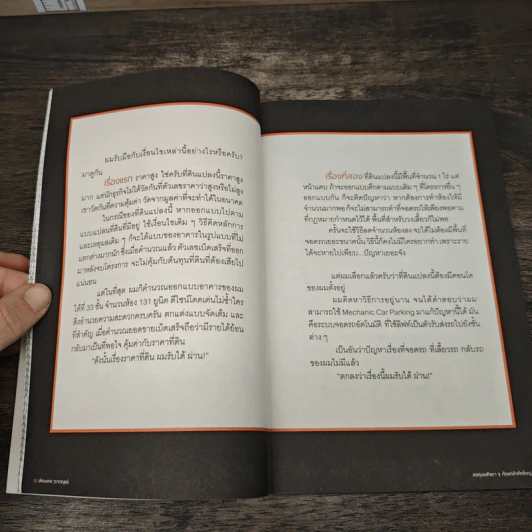 ผมรับมือกับเงื่อนไขเหล่านี้อย่างไรหรือครับ?
มาดูกัน
เรื่องแรก ราคาสูง ใช่ครับที่ดินแปลงนี้ราคาสูง
มาก แต่นักธุรกิจไม่ได้วัดกันที่ตัวเลขราคาว่าสูงหรือไม่สูง
เขาวัดกันที่ความคุ้มค่า วัดจากมูลค่าที่จะทำได้ในอนาคต
ในกรณีของที่ดินแปลงนี้ หากออกแบบไปตาม
แบบแปลนที่ดินที่มีอยู่ ใช้เงื่อนไขเดิม ๆ วิธีคิดหลักการ
และเหตุผลเดิม ๆ ก็จะได้แบบของอาคารในรูปแบบที่ไม่
แตกต่างมากนัก ซึ่งเมื่อคำนวณแล้ว ตัวเลขเบ็ดเสร็จที่ออก
มาหลังจบโครงการ จะไม่คุ้มกับต้นทุนที่ดินที่ต้องเสียไป
แน่นอน
แต่ในที่สุด ผมก็คำนวณออกแบบอาคารของผม
ได้ที่ 33 ชั้น จำนวนห้อง 131 ยูนิต ดีไซน์โดดเด่นไม่ซ้ำใคร
สิ่งอำนวยความสะดวกครบครัน ตกแต่งแบบจัดเต็ม และ
ที่สำคัญ เมื่อคำนวณยอดขายเบ็ดเสร็จถือว่ามีรายได้ย้อน
กลับมาเป็นที่พอใจ คุ้มค่ากับราคาที่ดิน
"ดังนั้นเรื่องราคาที่ดิน ผมรับได้ ผ่าน!"
เรื่องที่สอง ที่ดินแปลงนี้มีพื้นที่จำนวน 1 ไร่ แต่
หน้าแคบ ถ้าจะออกแบบตึกตามแบบเดิม ๆ ที่ใครกรายื่น ๆ
ออกแบบกัน ก็จะติดปัญหาว่า หากต้องการทำห้องให้มี
จำนวนมากพอก็จะไม่สามารถทำที่จอดรถให้เพียงพอตาม
ที่กฎหมายกำหนดไว้ได้ พื้นที่สำหรับวนเลี้ยวก็ไม่พอ
ครั้นจะใช้วิธีลดจำนวนห้องลง จะได้ไม่ต้องมีพื้นที่
จอดรถเยอะขนาดนั้น วิธีนี้ก็คงไม่มีใครอยากทำ เพราะราย
ได้จะหายไปเพียบ...ปัญหาเยอะจัง
แต่ผมเลือกแล้วครับว่าที่ดินแปลงนี้ต้องมีคอนโด
ของผมตั้งอยู่
ผมคิดหาวิธีการอยู่นาน จนได้คำตอบว่าผม
สามารถใช้ Mechanic Car Parking มาแก้ปัญหานี้ได้ มัน
คือระบบจอดรถอัตโนมัติ ที่ใช้ลิฟท์เป็นตัวรับส่งรถไปยังชั้น
ต่าง ๆ
เป็นอันว่าปัญหาเรื่องที่จอดรถ ที่เลี้ยวรถ กลับรถ
ของผมไม่มีแล้ว
"ตกลงว่าเรื่องนี้ผมรับได้ ผ่าน!"